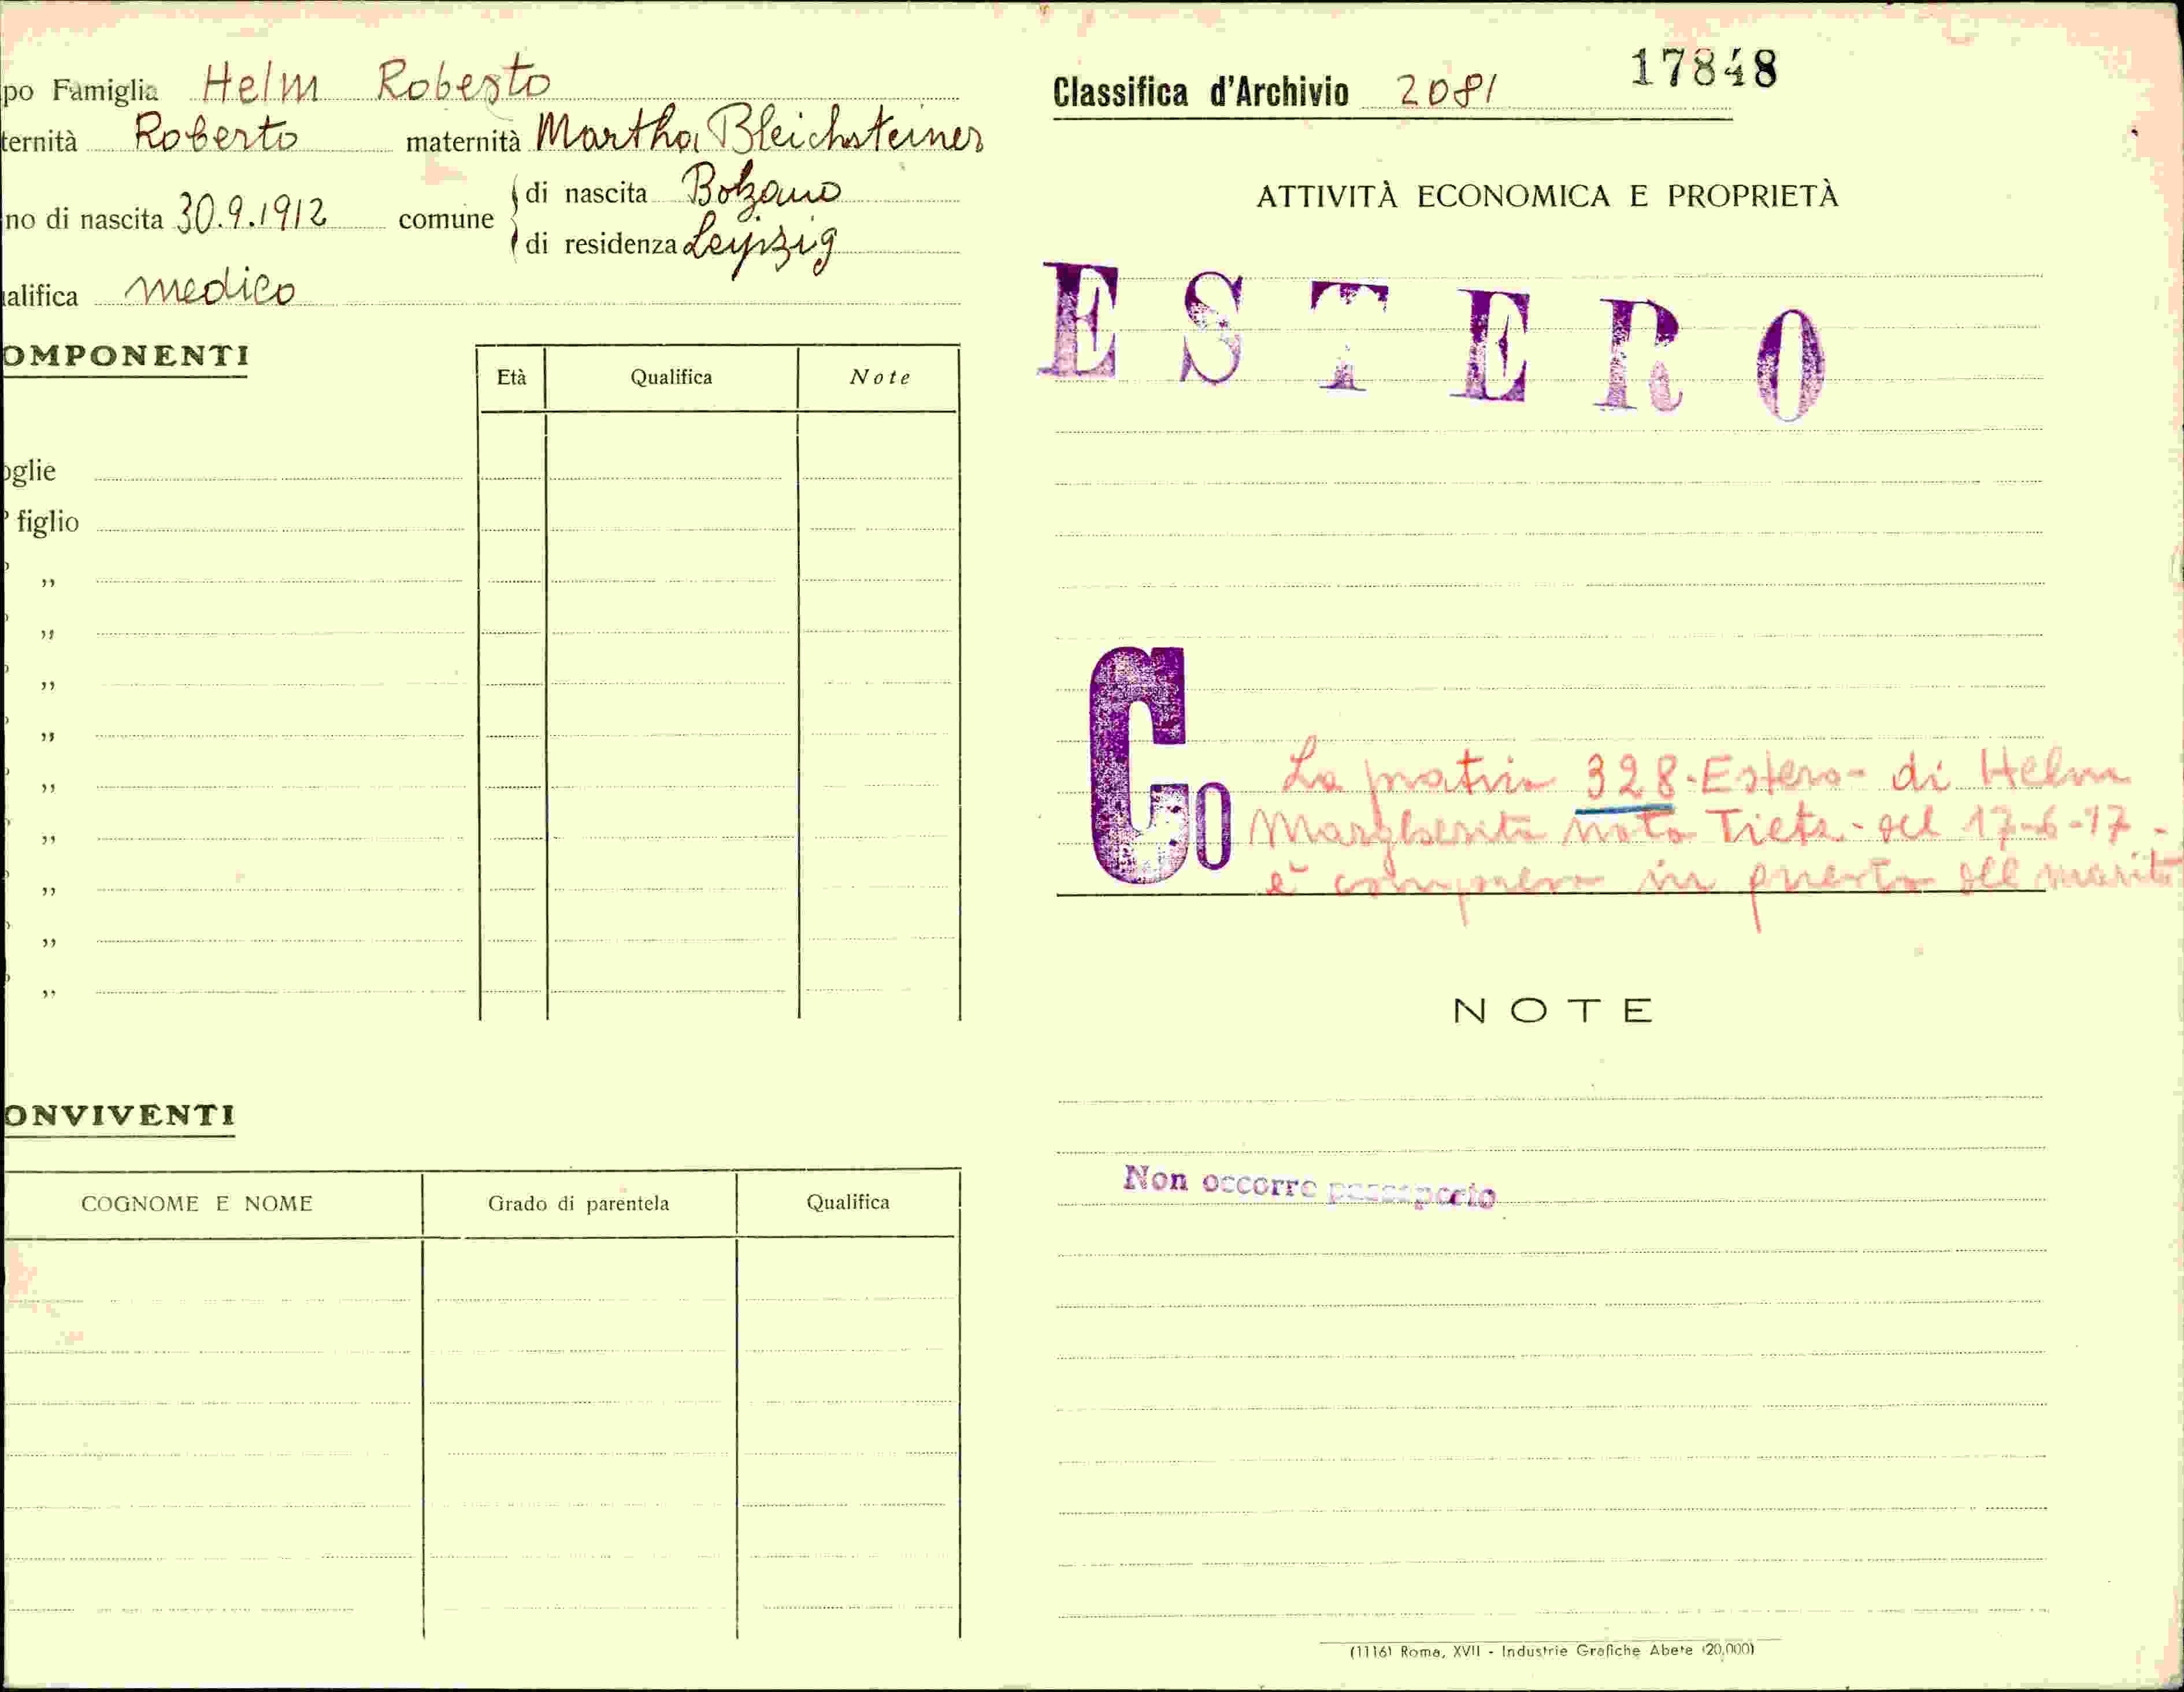 po Famiglia Helm Roberto
ternità Roberto maternità Martha Bleichsteiner
no di nascita 30.9.1912 comune di nascita Bolzano
di residenza Leipzig
alifica medico
OMPONENTI
Età Qualifica Note
oglie
figlio
"
"
"
"
"
"
"
"
"
ONVIVENTI
COGNOME E NOME Grado di parentela Qualifica
Classifica d'Archivio 2081 17848
ATTIVITÀ ECONOMICA E PROPRIETÀ
ESTERO
Co
La pratica 328-Estero- di Helm
Margherita nata Tietz - del 17-6-17 -
è compresa in questa del marito
NOTE
Non occorre passaporto
(1116) Roma, XVII - Industrie Grafiche Abete (20,000)